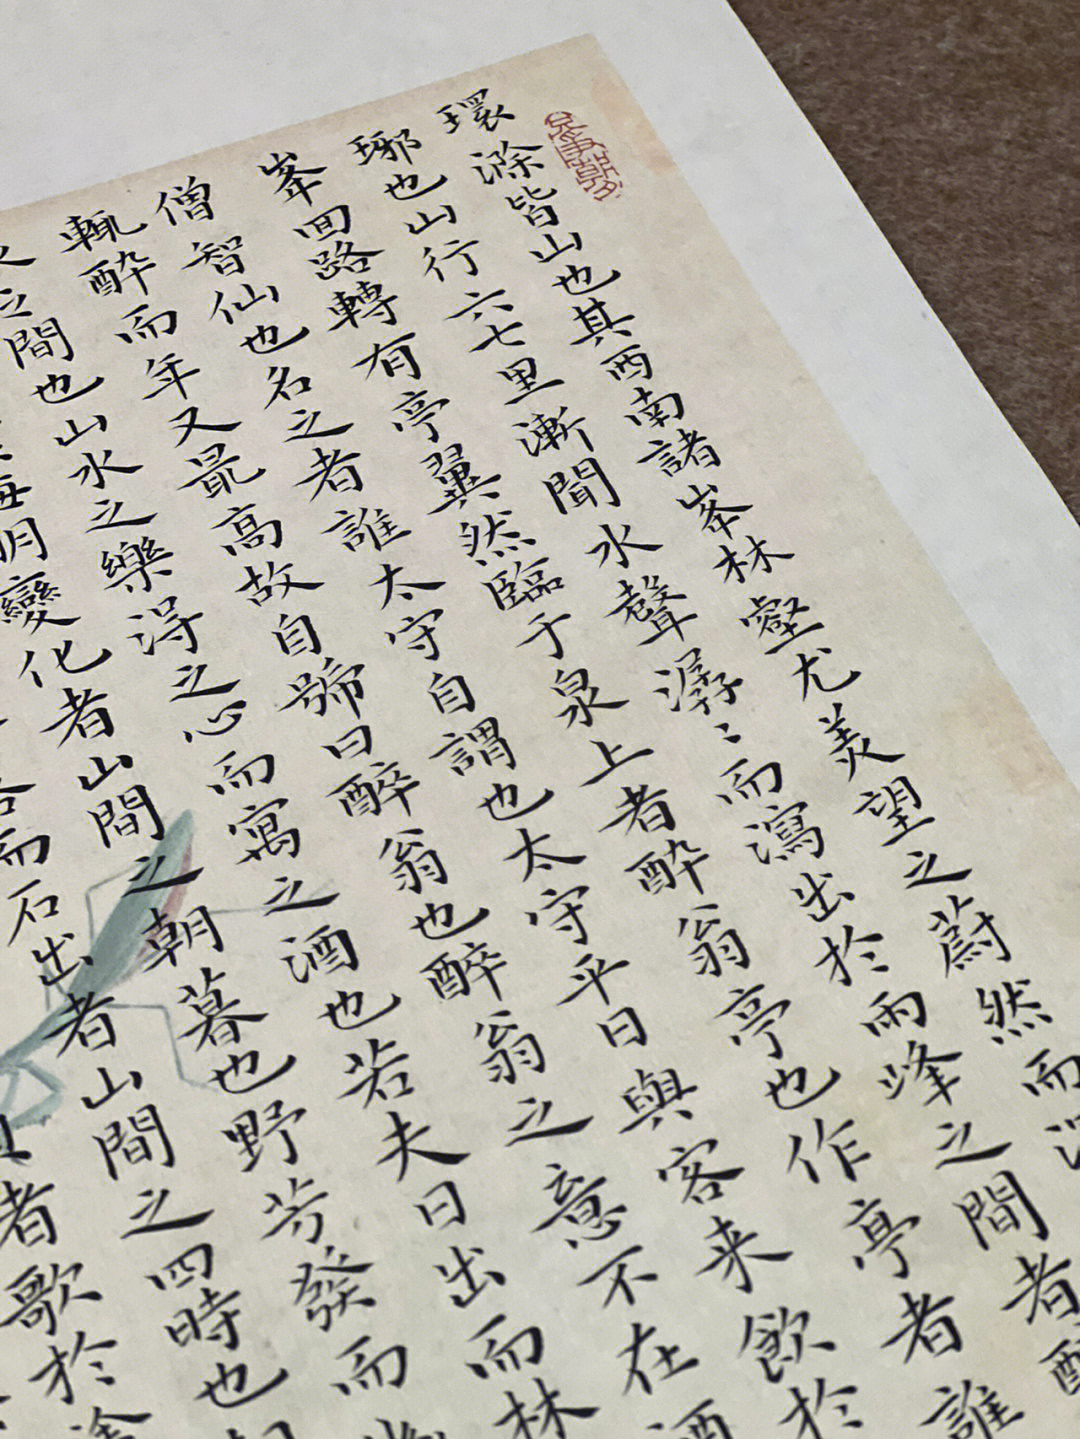 環滁皆山也其西南諸峯林壑尤美望之蔚然而深
琊也山行六七里漸聞水聲潺〻而瀉出於兩峰之間者釀
峯回路轉有亭翼然臨于泉上者醉翁亭也作亭者誰
僧智仙也名之者誰太守自謂也太守平日與客来飲於
輒醉而年又最高故自號曰醉翁也醉翁之意不在酒
水之間也山水之樂得之心而寓之酒也若夫日出而林
晦明變化者山間之朝暮也野芳發而
而石出者山間之四時也
者歌於塗